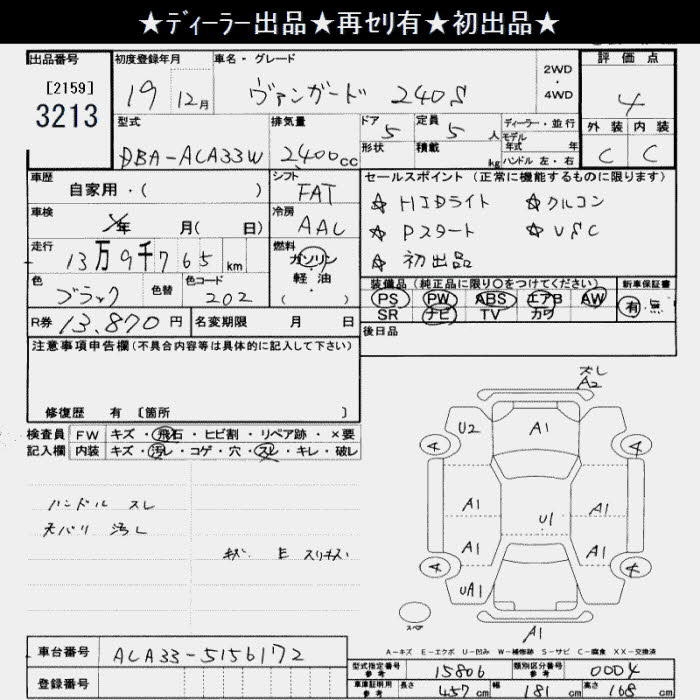 ★ディーラー出品★再セリ有★初出品★
出品番号 初度登録年月 車名・グレード 2WD・4WD 評価点
[2159]
3213 19 12月 ヴァンガード 240S 4
型式 排気量 ドア 定員 ディーラー・並行 外装 内装
DBA-ACA33W 2400cc 5 5人 モデル年式 年 C C
形状 積載 kg ハンドル 左・右
車歴 シフト セールスポイント(正常に機能するものに限ります)
自家用・( ) FAT ☆HIDライト ☆クルコン
車検 年 月( 日) 冷房 AAC ☆Pスタート ☆VSC
走行 13万9千765km 燃料 ガソリン 軽油 ・( ) ☆初出品
色 色替 色コード 装備品(純正品に限り○をつけてください) 新車保証書
ブラック 202 PS PW ABS エアB AW 有・無
R券 13,870円 名変期限 月 日 SR ナビ TV カワ
注意事項申告欄(不具合内容等は具体的に記入して下さい) 後日品
修復歴 有〔箇所 〕
検査員 FW キズ・飛石・ヒビ割・リペア跡・×要
記入欄 内装 キズ・汚レ・コゲ・穴・スレ・キレ・破レ
ハンドル スレ
天バリ 汚レ
スレ
A2
U2 A1
4 4
A1 A1
U1
A1 A1
4 4
UA1
A1
スペア
A-キズ E-エクボ U-凹み W-補修跡 S-サビ C-腐食 XX-交換済
車台番号 ACA33-5156172
型式指定番号 参考 15806 類別区分番号 参考 0004
登録番号 車庫証明用 参考 長さ 457cm 幅 181cm 高さ 168cm